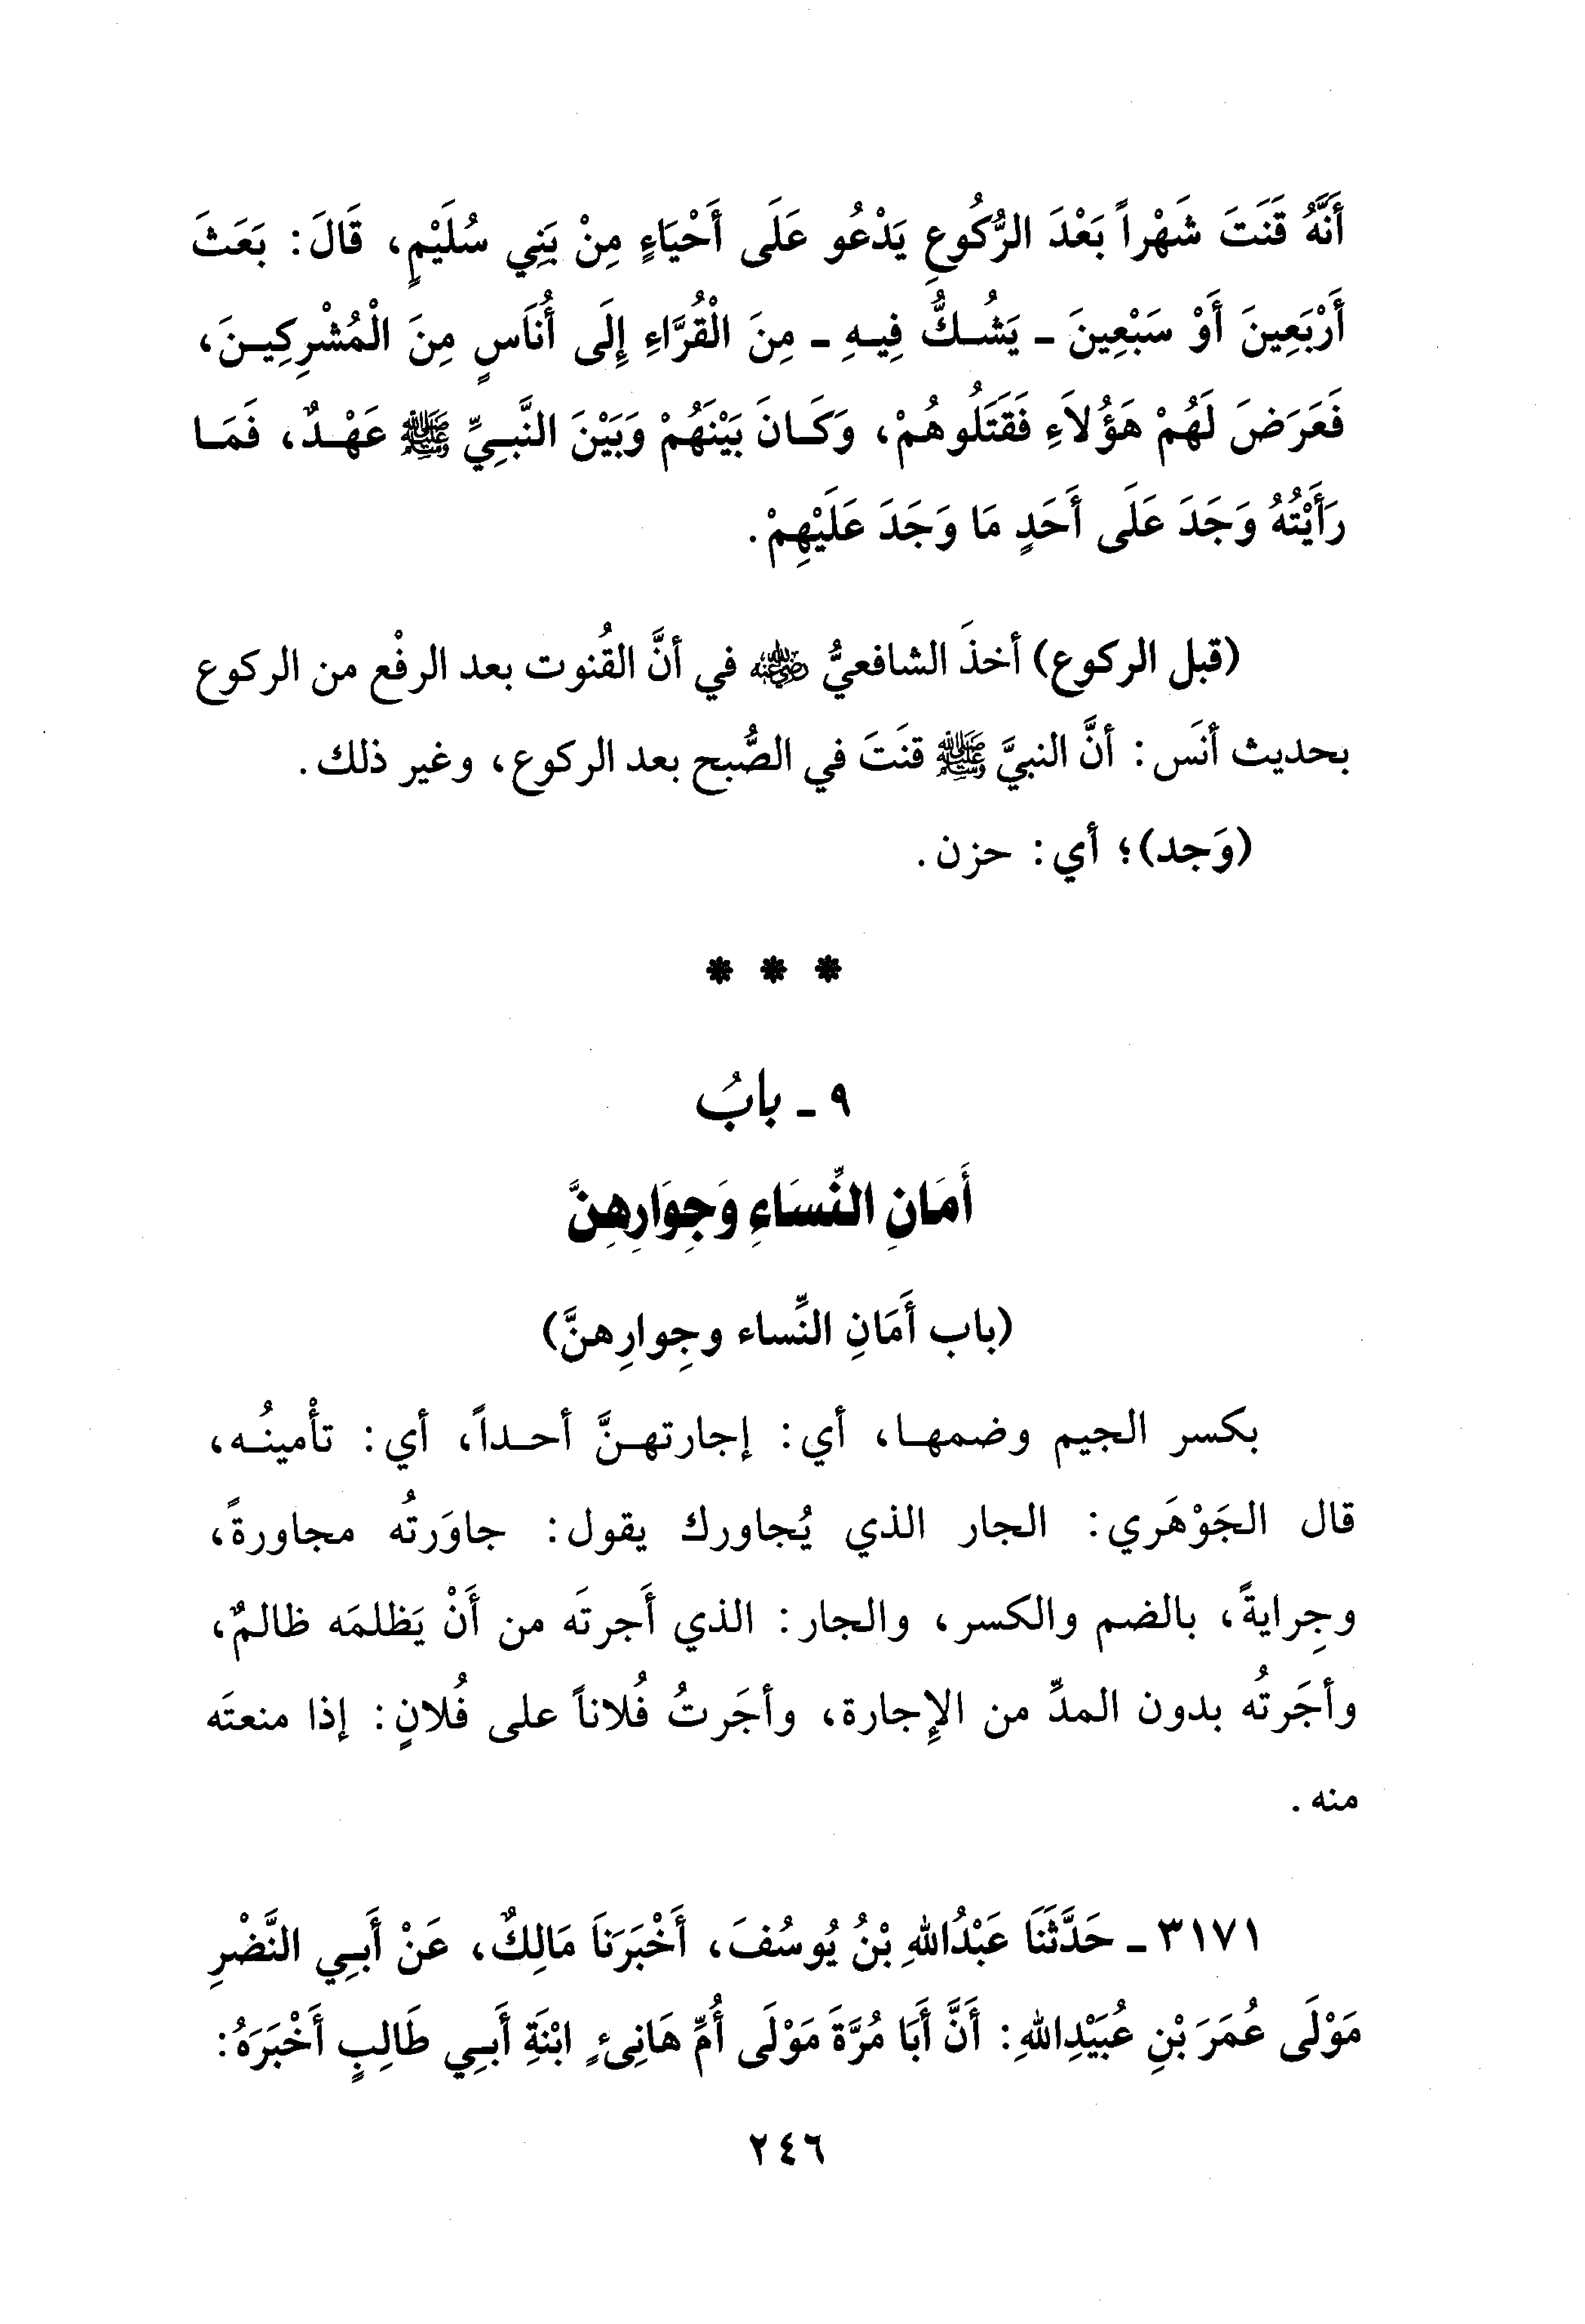 أَنَّهُ قَنَتَ شَهْراً بَعْدَ الرُّكُوعِ يَدْعُو عَلَى أَحْيَاءٍ مِنْ بَنِي سُلَيْمٍ، قَالَ: بَعَثَ
أَرْبَعِينَ أَوْ سَبْعِينَ - يَشُكُّ فِيهِ - مِنَ الْقُرَّاءِ إِلَى أُنَاسٍ مِنَ الْمُشْرِكِينَ،
فَعَرَضَ لَهُمْ هَؤُلاَءِ فَقَتَلُوهُمْ، وَكَانَ بَيْنَهُمْ وَبَيْنَ النَّبِيِّ ﷺ عَهْدٌ، فَمَا
رَأَيْتُهُ وَجَدَ عَلَى أَحَدٍ مَا وَجَدَ عَلَيْهِمْ.
(قبل الركوع) أخذَ الشافعيُّ رضي الله عنه في أنَّ القُنوت بعد الرفْع من الركوع
بحديث أنَس: أنَّ النبيَّ ﷺ قنَتَ في الصُّبح بعد الركوع، وغير ذلك.
(وَجد)؛ أي: حزن.
* * *
٩ - بابُ
أَمَانِ النِّسَاءِ وَجِوَارِهِنَّ
(باب أَمَانِ النِّساء وجِوارِهنَّ)
بكسر الجيم وضمها، أي: إجارتهنَّ أحداً، أي: تأْمينُه،
قال الجَوْهَري: الجار الذي يُجاورك يقول: جاوَرتُه مجاورةً،
وجِرايةً، بالضم والكسر، والجار: الذي أَجرتَه من أَنْ يَظلمَه ظالمٌ،
وأجَرتُه بدون المدِّ من الإِجارة، وأجَرتُ فُلاناً على فُلانٍ: إذا منعتَه
منه.
٣١٧١ - حَدَّثَنَا عَبْدُاللهِ بْنُ يُوسُفَ، أَخْبَرَنَا مَالِكٌ، عَنْ أَبِي النَّضْرِ
مَوْلَى عُمَرَ بْنِ عُبَيْدِاللهِ: أَنَّ أَبَا مُرَّةَ مَوْلَى أُمِّ هَانِىءٍ ابْنَةِ أَبِي طَالِبٍ أَخْبَرَهُ:
٢٤٦